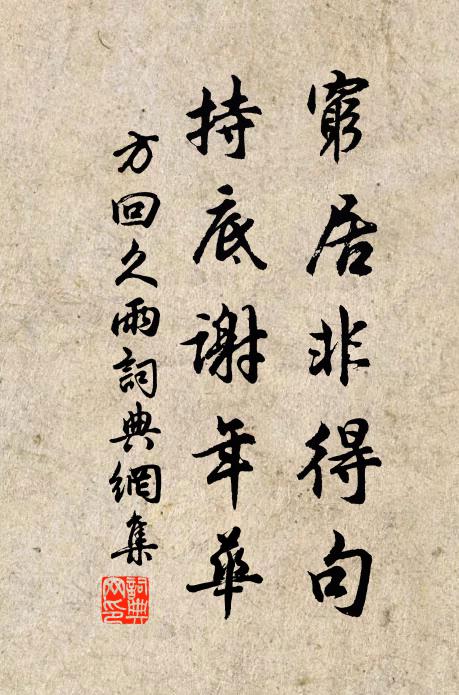 窮居非得句
持底謝年華
方回久雨詞典網集
詞典網印